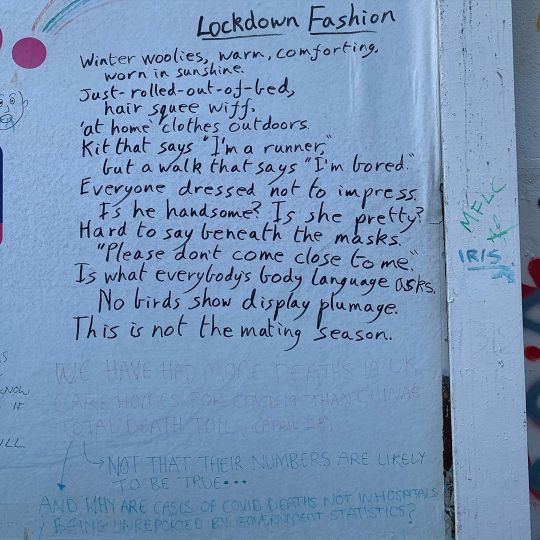 Lockdown Fashion
Winter woolies, warm, comforting,
worn in sunshine.
Just-rolled-out-of-bed,
hair squee wiff,
'at home' clothes outdoors.
Kit that says "I'm a runner,"
but a walk that says "I'm bored."
Everyone dressed not to impress.
Is he handsome? Is she pretty?
Hard to say beneath the masks.
"Please don't come close to me."
Is what everybody's body language asks.
No birds show display plumage.
This is not the mating season.
WE HAVE HAD MORE DEATHS IN UK
CARE HOMES FOR COVID-19 THAN CHINAS
TOTAL DEATH TOLL (APRIL 28)
NOT THAT THEIR NUMBERS ARE LIKELY
TO BE TRUE...
AND WHY ARE CASES OF COVID DEATHS NOT IN HOSPITALS
BEING UNREPORTED BY GOVERNMENT STATISTICS?
KNOW
IF
MFLC
IRIS